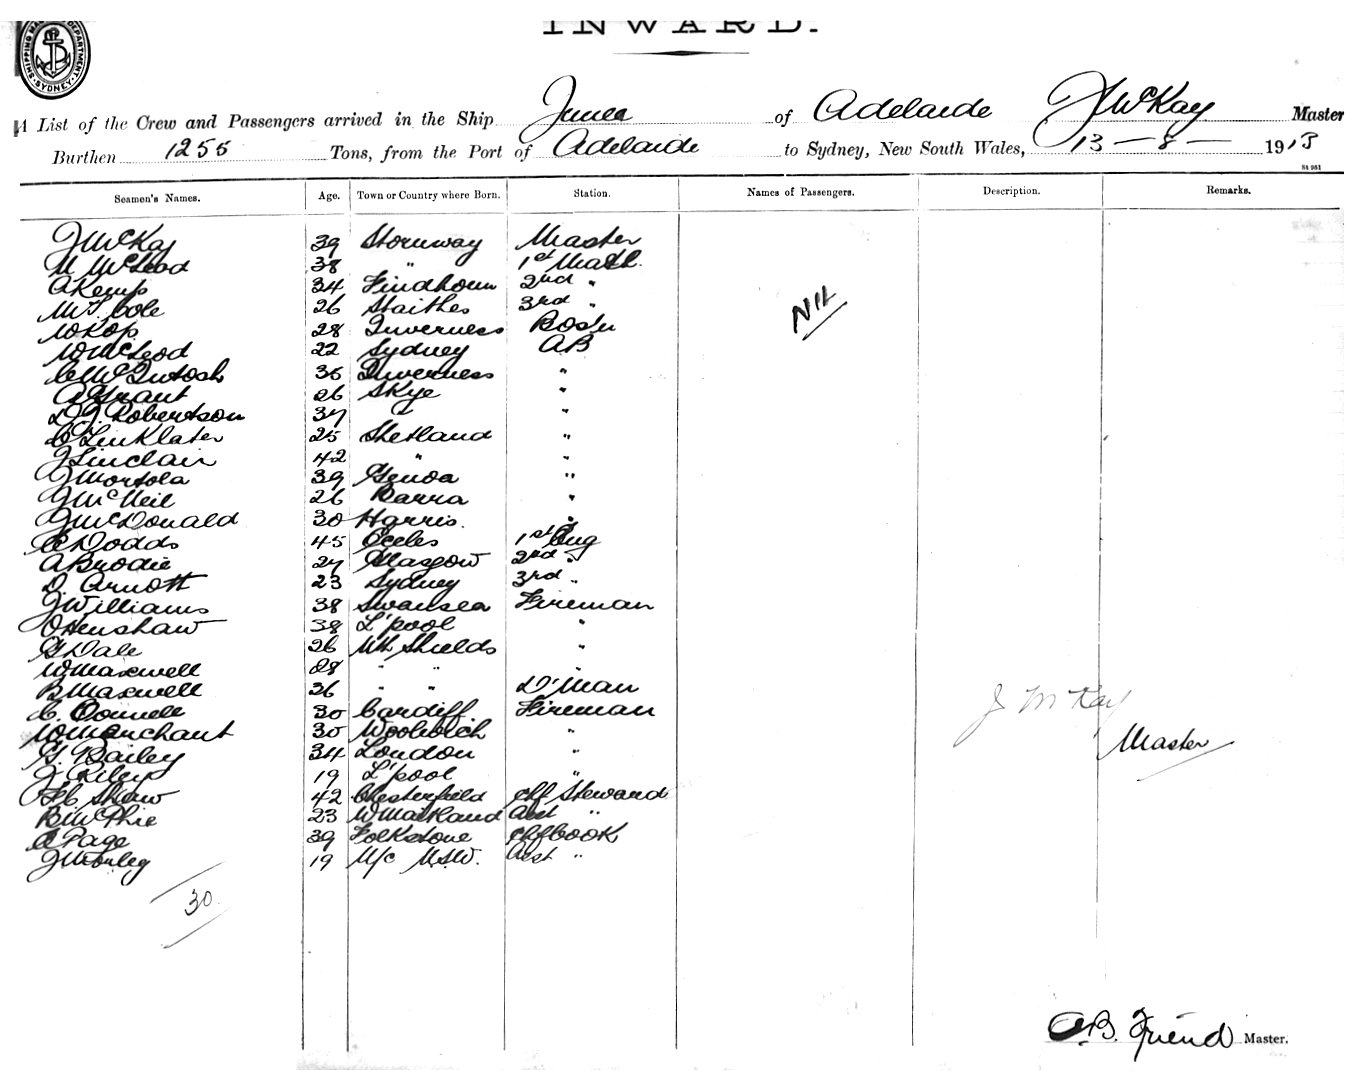 INWARD.
SHIPPING MA DEPARTMENT. SYDNEY
A List of the Crew and Passengers arrived in the Ship Junee of Adelaide J McKay Master
Burthen 1255 Tons, from the Port of Adelaide to Sydney, New South Wales, 13 - 8 - 1913
St 951
Seamen's Names. Age. Town or Country where Born. Station. Names of Passengers. Description. Remarks.
J McKay 39 Stornway Master
M McLeod 38 " 1st Mate
A Kemp 34 Findhorn 2nd "
M T. Cole 26 Staithes 3rd "
Nil
W Kop. 28 Inverness Bos'n
W McLeod 22 Sydney AB
C McIntosh 36 Inverness "
A Grant 26 Skye "
D J. Robertson 37 "
C Linklater 25 Shetland "
J Sinclair 42 " "
J Mortola 39 Genoa "
J McNeil 26 Barra "
J McDonald 30 Harris. "
C Dodds 45 Eccles 1st Eng
A Brodie 27 Glasgow 2nd "
D. Arnott 23 Sydney 3rd "
J Williams 38 Swansea Fireman
O Henshaw 38 L'pool "
G Dale 26 Nth Shields "
W Maxwell 28 " "
B Maxwell 26 " " D'Man
C. Connell 30 Cardiff. Fireman
J McKay
W Marchant 30 Woolwich "
Master
G. Bailey 34 London "
J. Riley 19 L'pool "
F C Shaw 42 Chesterfield Chf Steward
B McPhie 23 W Maitland Asst "
A Page 39 Folkstone Chf Cook
J Worley 19 M/c N.S.W. Asst "
30
A.B. Friend Master.